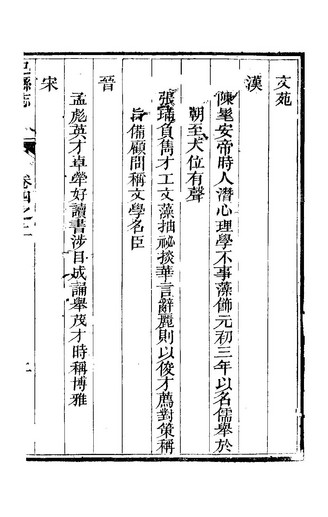 文苑
漢
陳髦安帝時人潛心理學不事藻飾元初三年以名儒舉於
朝至大位有聲
張埔負雋才工文藻抽祕掞華言辭麗則以俊才薦對策稱
旨備顧問稱文學名臣
晉
孟彪英才卓犖好讀書涉目成誦舉茂才時稱博雅
宋
縣志
卷四之二